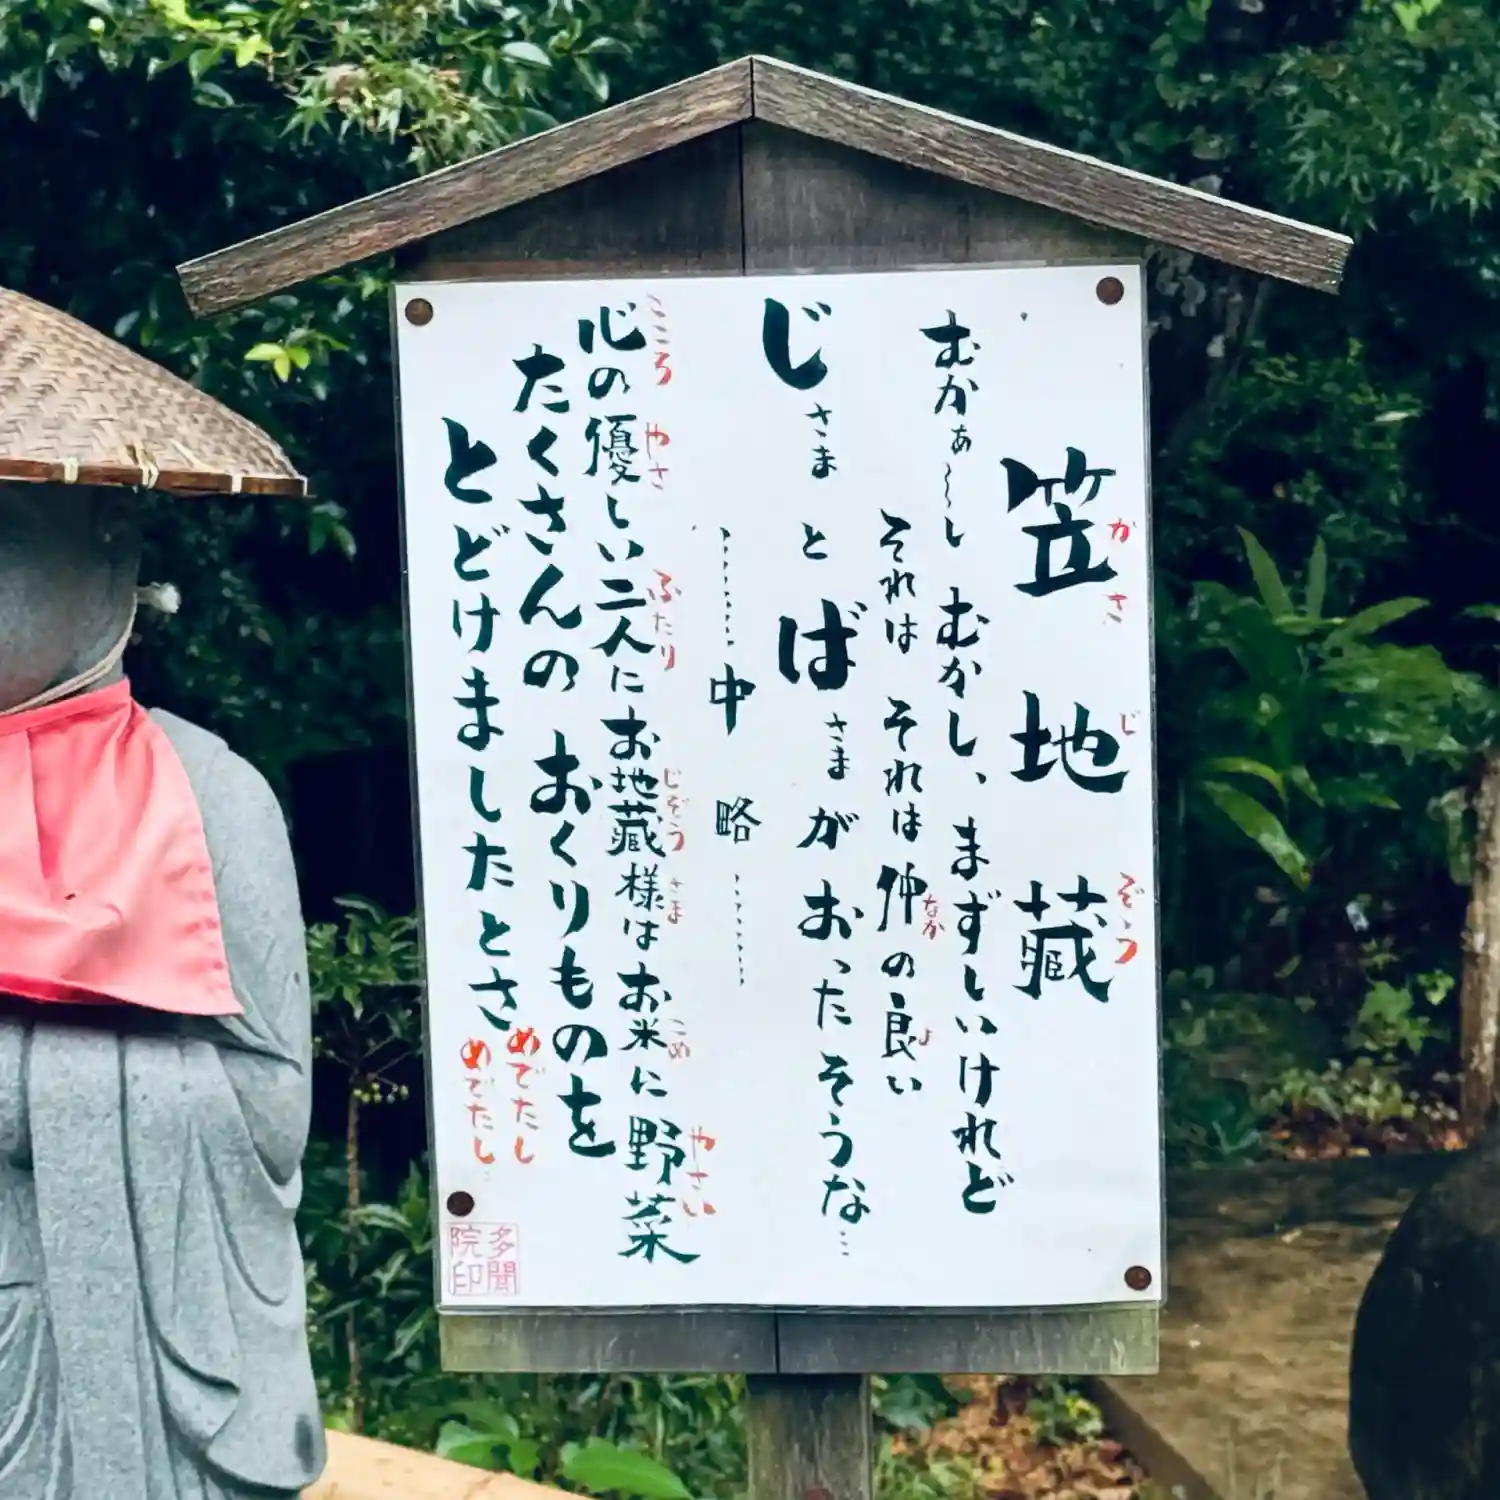 笠地蔵
かさ じ ぞう
むかぁ~し むかし、まずしいけれど
それは それは 仲の良い
なか よ
じさまとばさまがおったそうな…
……中略……
心の優しい二人にお地蔵様はお米に野菜
こころ やさ ふたり じぞう さま こめ やさい
たくさんの おくりものを
とどけましたとさ
めでたし
めでたし
多聞
院印